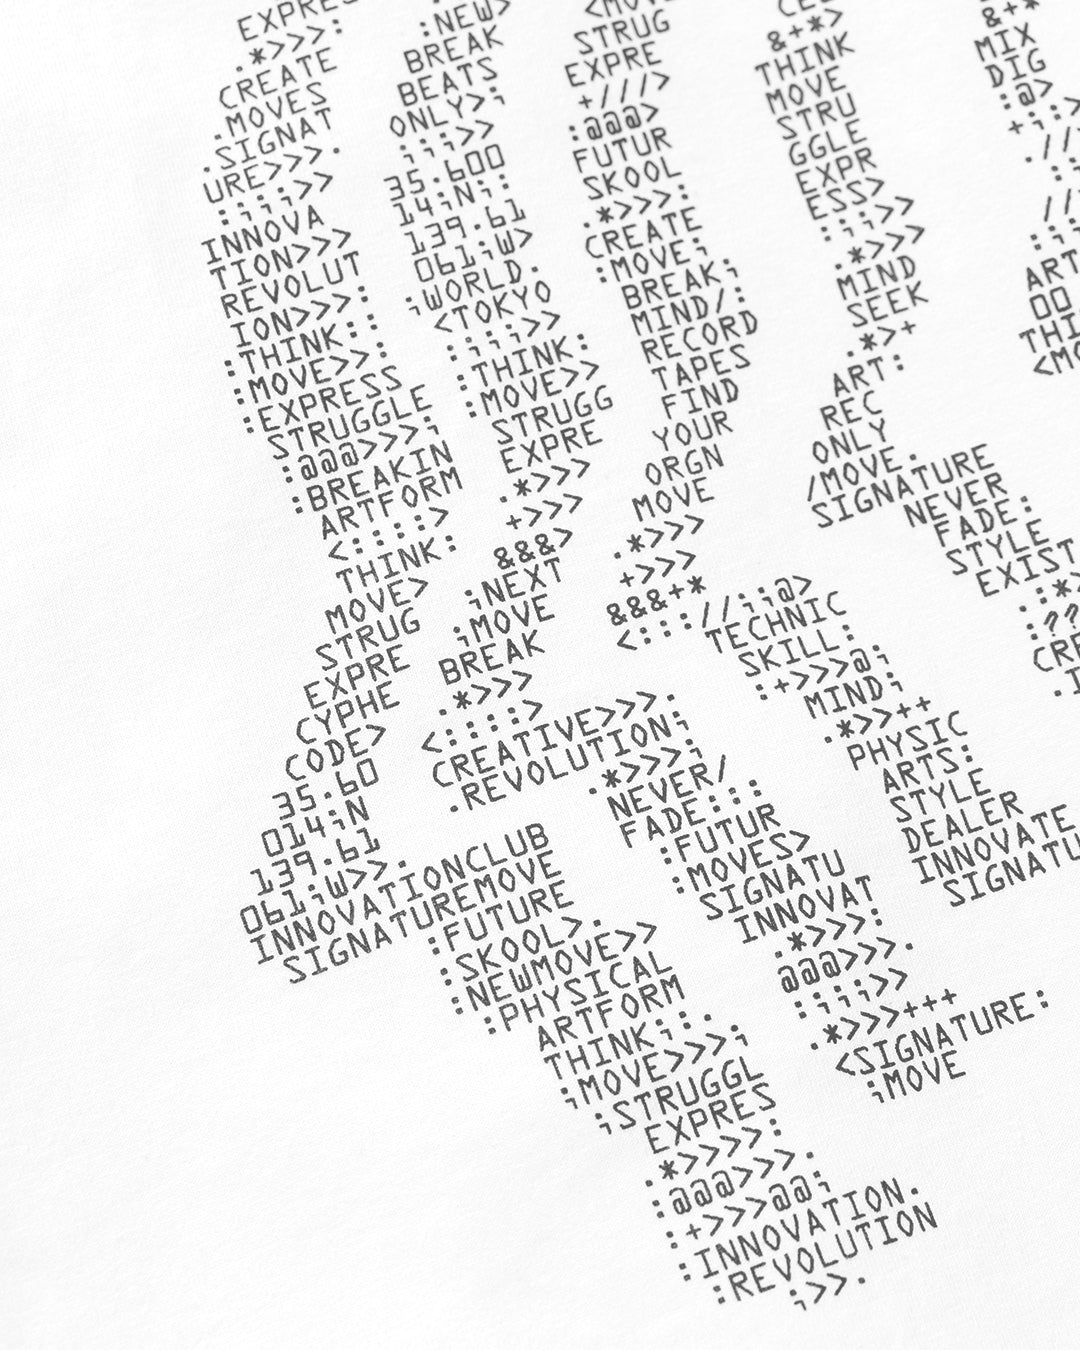 EXPRES
.*>>>:
CREATE
.MOVES
.SIGNAT
URE>>>.
:;;;>>
INNOVA
TION>>>
REVOLUT
ION>>>:
:THINK::
:MOVE>>:
:EXPRESS
STRUGGLE
:@@@>>>;
:BREAKIN
ARTFORM
<::::>
THINK:
MOVE>
STRUG
EXPRE
CYPHE
CODE>
35.60
014;N
139.61
061;W>>.
INNOVATIONCLUB
SIGNATUREMOVE
:FUTURE
:SKOOL>.
:NEWMOVE>>
:PHYSICAL
ARTFORM
THINK;:.
;MOVE>>>;
;STRUGGL
EXPRES
.*>>>>:
:@@@>>>.
:+>>>@@;
:INNOVATION.
:REVOLUTION
;>>.
:NEW>
BREAK
BEATS
ONLY>;
;;;>>
35.600
14;N;:
139.61
061;W>
;WORLD.
<TOKYO
:;;;>>
:THINK:
:MOVE>>
STRUGG
EXPRE
.*>>>
+>>>
&&&>
;NEXT
;MOVE
BREAK
.*>>>
<::::>
CREATIVE>>>.
.REVOLUTION;
.*>>>;
NEVER/
FADE:::
:FUTUR
:MOVES>
SIGNATU
INNOVAT
.*>>>:
@@@>>>.
:;;;>>
.*>>>+++
<SIGNATURE:
;MOVE
<MOVE
STRUG
EXPRE
+///>
:@@@>
FUTUR
SKOOL
.*>>>:
CREATE
:MOVE;
BREAK;
MIND/:
RECORD
TAPES
FIND
YOUR
ORGN
MOVE
.*>>>
+>>>
&&&+*
<:::://;;@>
TECHNIC
SKILL:
:+>>>@;
MIND;
.*>>++
PHYSIC
ARTS:
STYLE
DEALER
INNOVATE
SIGNATU
&+*>
THINK
MOVE
STRU
GGLE
EXPR
ESS>
:;;>>
.*>>>
MIND
SEEK
.*>+
ART:
REC
ONLY
/MOVE.
SIGNATURE
NEVER
FADE:
STYLE
EXIST
.:*>
:??
CRE
.I
&+*
MIX
DIG
:@>
+;:>
.//
:;
//
:;:
ART
00
THI
<MO